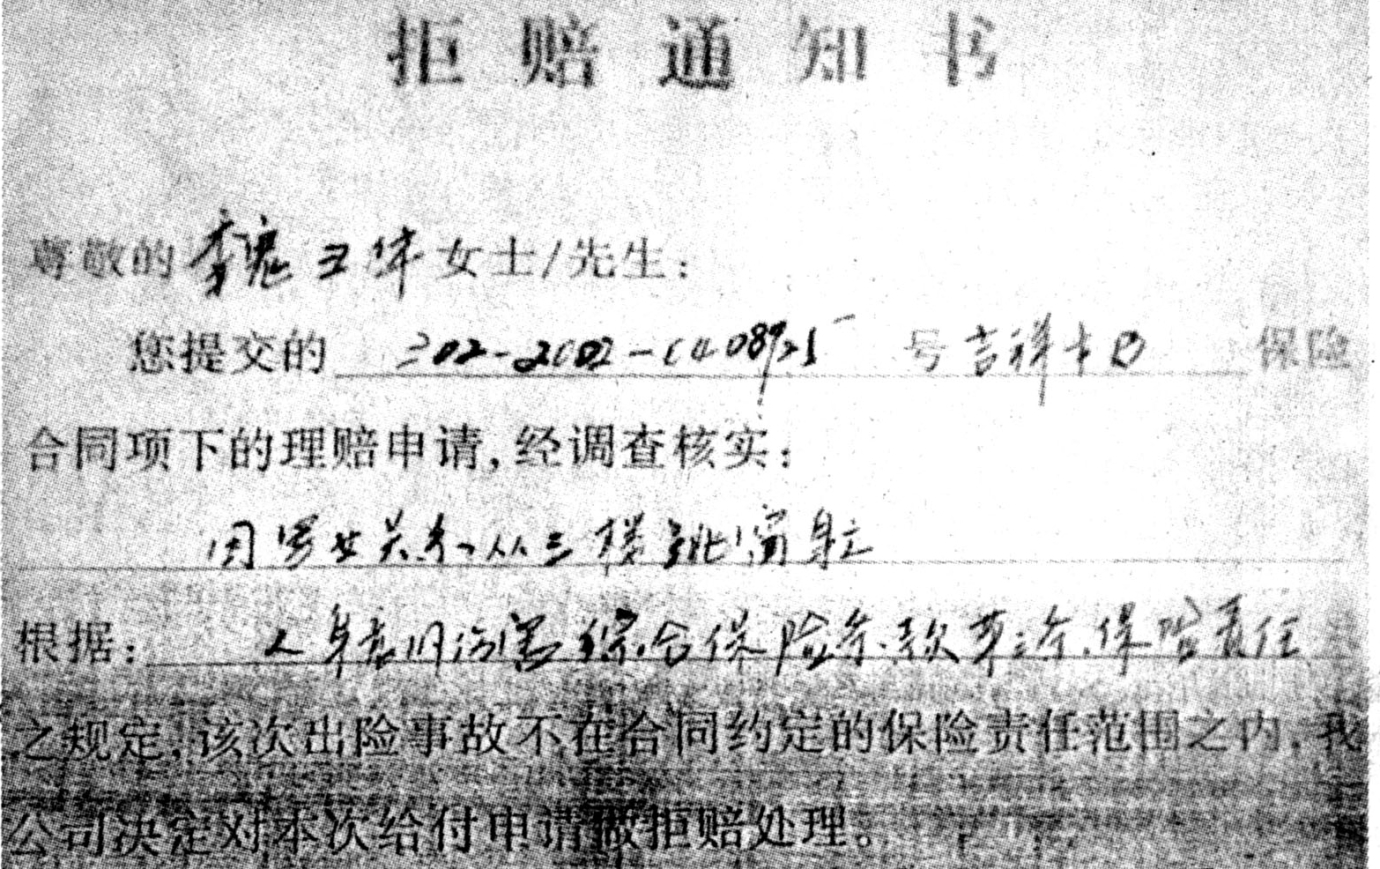 拒赔通知书
尊敬的魏卫华女士/先生：
您提交的 号吉祥卡D 保险
合同项下的理赔申请,经调查核实：
因男女关系从三楼跳窗身亡
根据： 人身意外伤害综合保险条款第三条保险责任
之规定,该次出险事故不在合同约定的保险责任范围之内,我
公司决定对本次给付申请做拒赔处理。